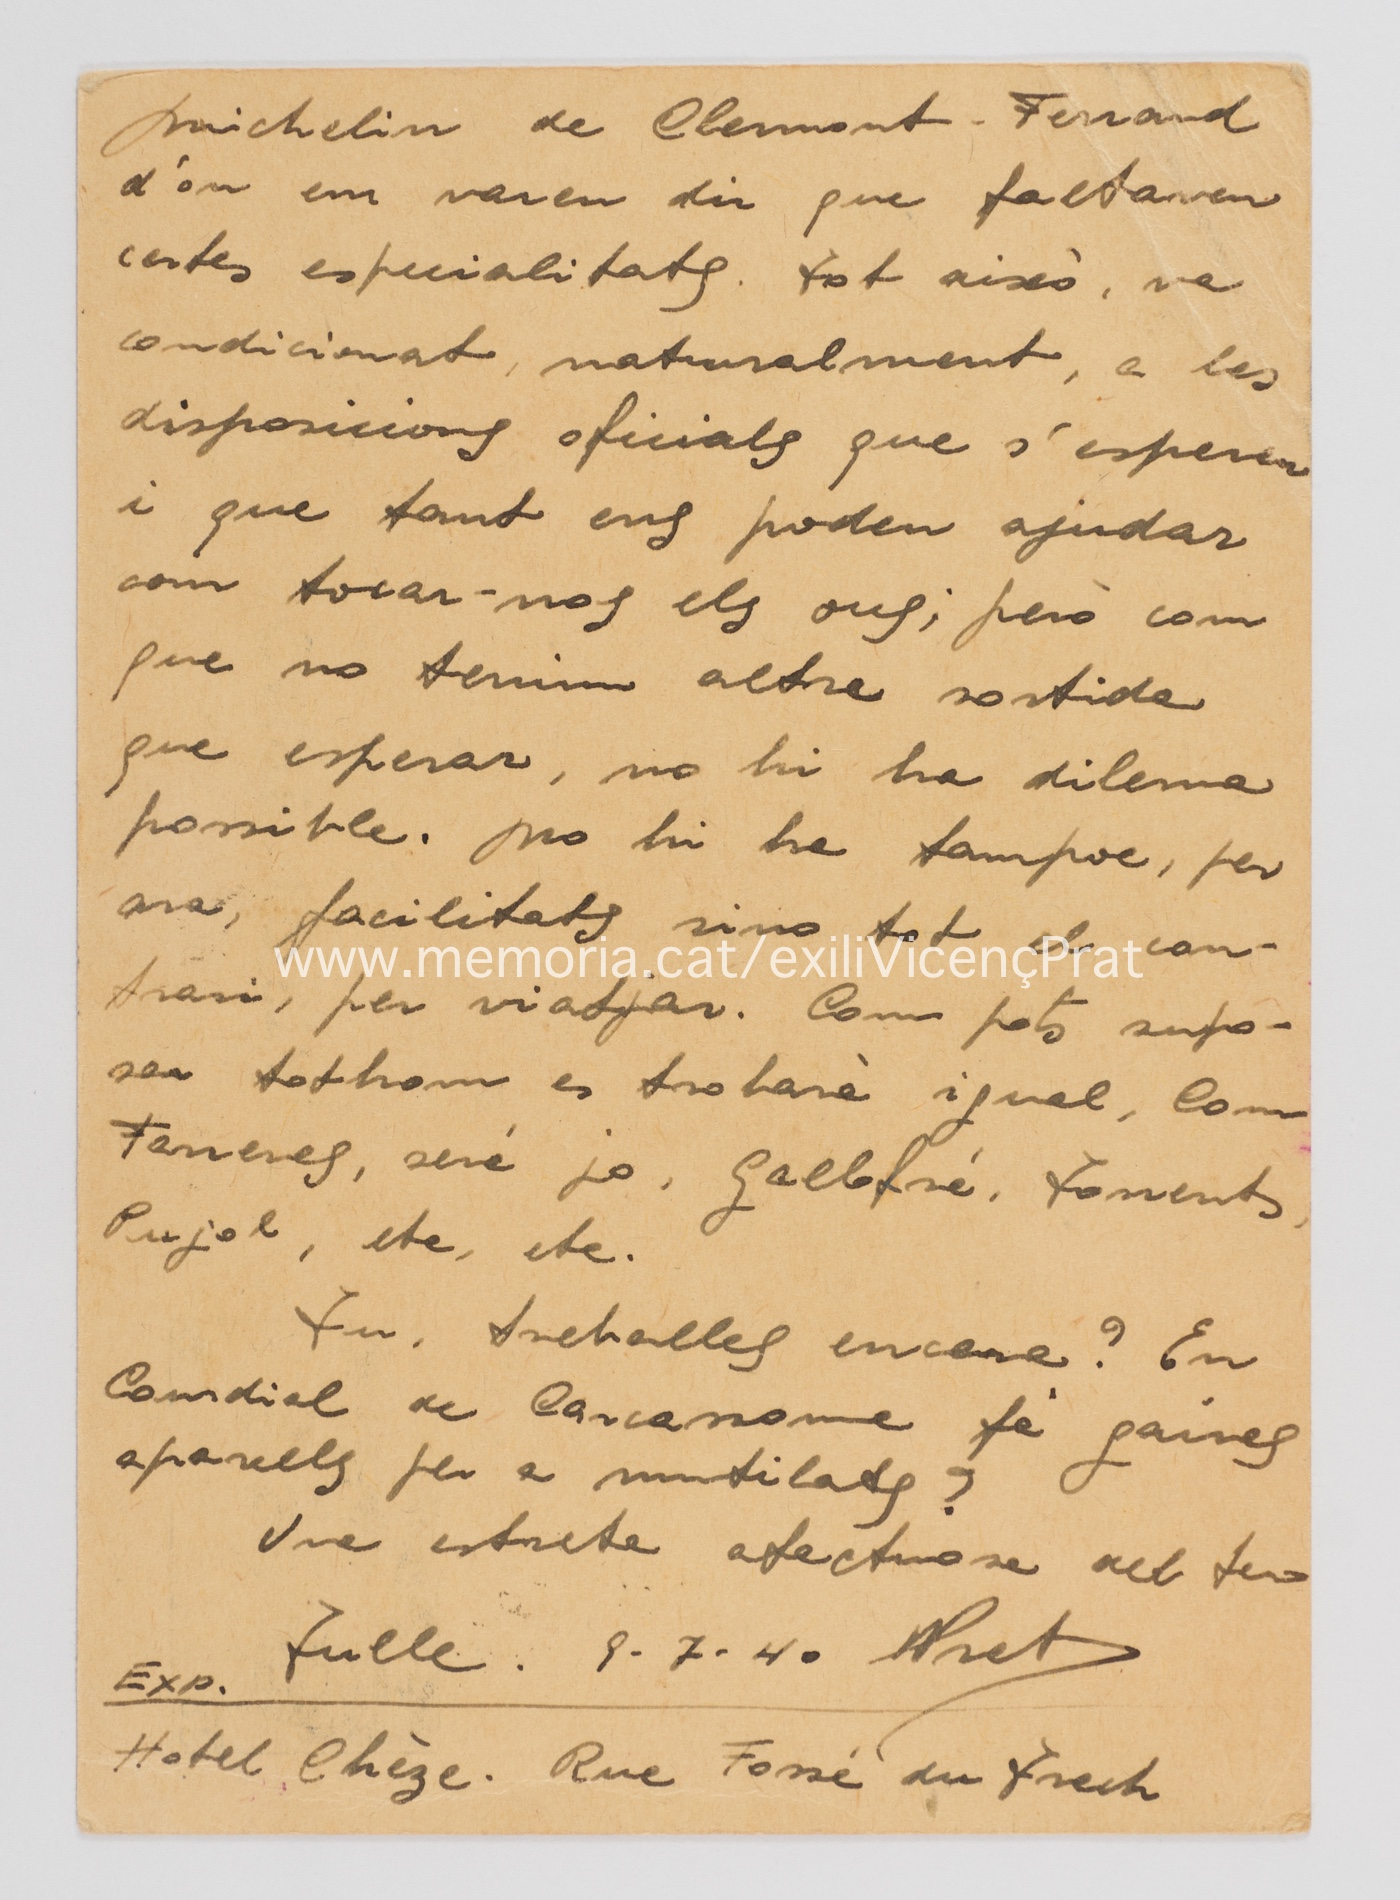 Michelin de Clermont-Ferrand
d'on em varen dir que faltaven
certes especialitats. Tot aixó, va
condicionat, naturalment, a les
disposicions oficials que s'esperen
i que tant ens poden ajudar
com tocar-nos els ous; però com
que no tenim altre sortida
que esperar, no hi ha dilema
possible. No hi ha tampoc, per
ara, facilitats sino tot el con-
www.memoria.cat/exiliVicençPrat
trari, per viatjar. Com pots supo-
sar tothom es trobarà igual, Com
Farreres, seré jo, Gallofré, Torrents,
Pujol, etc, etc.
Tu, treballes encara? En
Courdial de Carcassonne fà gaires
aparells per a mutilats?
Una estreta afectuosa del teu
Tulle. 9-7-40 Prat
EXP.
Hotel Chèze. Rue Fossé du Trech